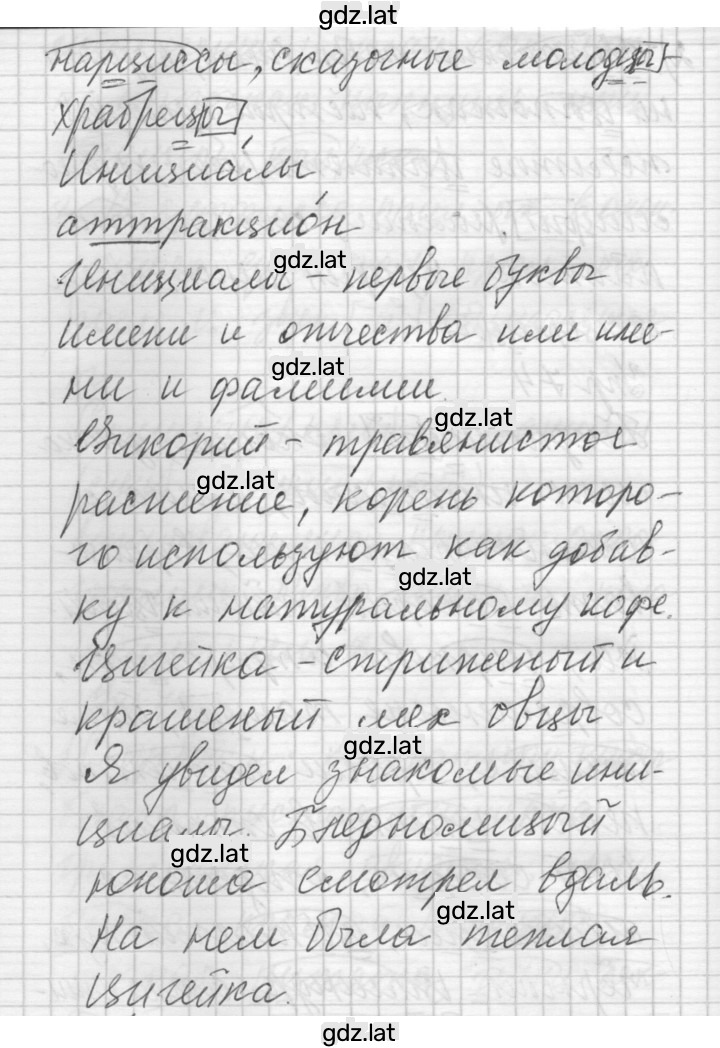 gdz.lat
нарциссы, сказочные молодцы,
храбрецы
Инициалы
аттракцион
gdz.lat
Инициалы - первые буквы
имени и отчества или име-
gdz.lat
ни и фамилии.
gdz.lat
Цикорий - травянистое
gdz.lat
растение, корень которо-
го используют как добав-
gdz.lat
ку к натуральному кофе.
Цигейка - стриженый и
крашеный мех овцы
gdz.lat
Я увидел знакомые ини-
циалы. Бледнолицый
gdz.lat
юноша смотрел вдаль.
gdz.lat
На нем была теплая
цигейка.
gdz.lat